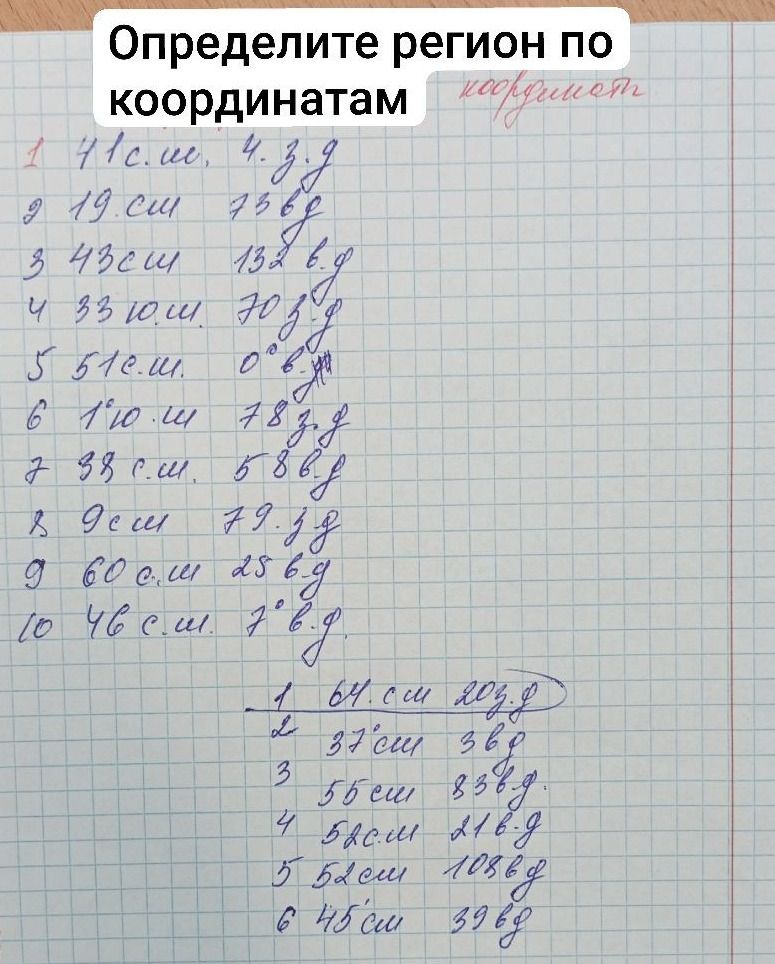 Определите регион по
координатам
координаты
1 41 с.ш. 4. з.д
2 19. сш 73 вд
3 43 сш 132 в.д
4 33 ю.ш. 70 з.д
5 51 с.ш. 0° в.
6 1° ю.ш 78 з.д
7 38 с.ш. 58 в.д
8 9 сш 79. з.д
9 60 с.ш 25 в.д
10 46 с.ш. 7° в.д.
1 64. сш 20 з.д
2 37° сш 3 вд
3 55 сш 83 в.д.
4 52 с.ш 21 в.д
5 52 сш 108 вд
6 45° сш 39 вд